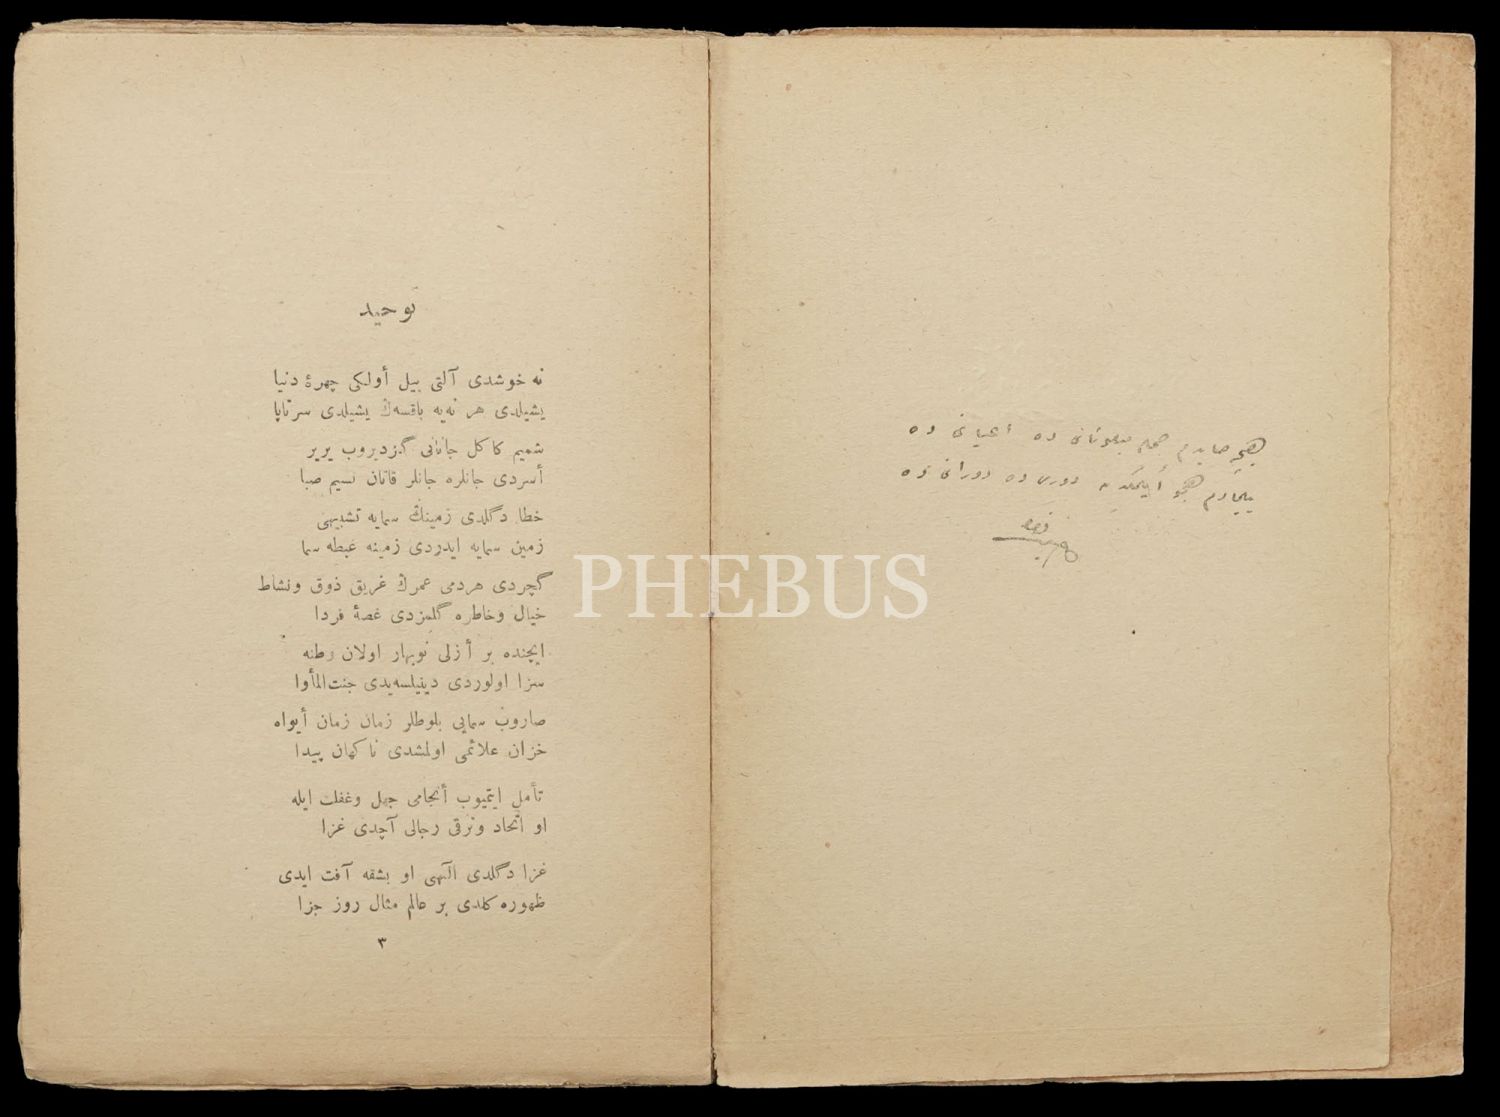 توحید
نه خوشدی آلتی ییل أولكی چهرۀ دنیا
یشیلدی هر نه‌یه باقسه‌ڭ یشیلدی سرتاپا
شمیم كاكل جانانی گزدیروب یریر
أسردی جانلره جانلر قاتان نسیم صبا
خطا دگلدی زمینڭ سمایه تشبیهی
زمین سمایه ایدردی زمینه غبطه سما
گچردی هردمی عمرڭ غریق ذوق ونشاط
خیال وخاطره گلمزدی غصۀ فردا
ایچنده بر أزلی نوبهار اولان وطنه
سزا اولوردی دینیلسه‌یدی جنت‌المأوا
صاروب سمایی بلوطلر زمان زمان أیواه
خزان علائمی اولمشدی ناكهان پیدا
تأمل ایتمیوب أنجامی جهل وغفلت ایله
او اتحاد وترقی رجالی آچدی غزا
غزا دگلدی الٓهی او بشقه آفت ایدی
ظهوره كلدی بر عالم مثال روز جزا
٣
مبعوثانی ده اعیانی ده
هجو دوری ده دورانی ده
PHEBUS